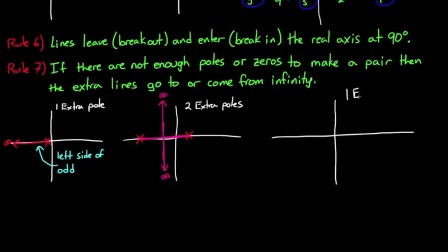 Rule 6) Lines leave (breakout) and enter (break in) the real axis at 90°.
Rule 7) If there are not enough poles or zeros to make a pair then
the extra lines go to or come from infinity.
1 Extra pole
2 Extra poles
1 E
∞
∞
∞
left side of
odd